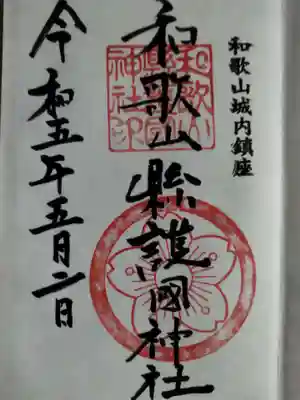 和歌山城内鎮座
和歌山縣護國神社
和歌山縣護國神社印
令和五年五月二日